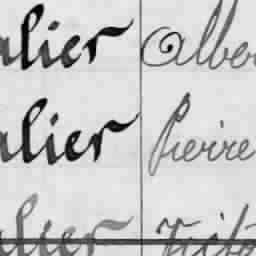 alier Alber
alier Pierre
alier Victo